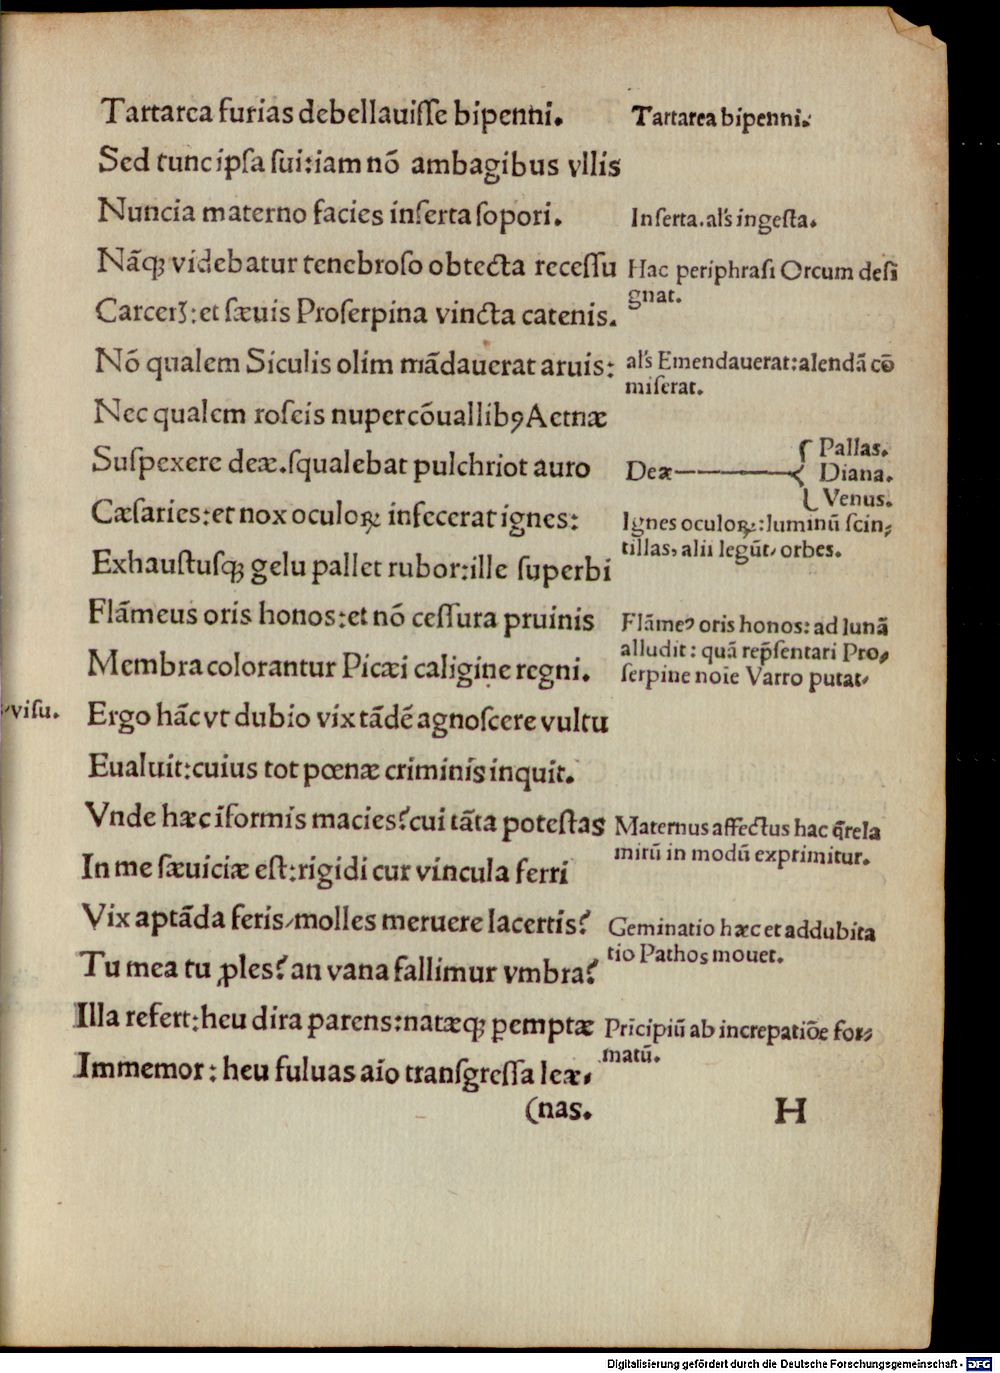 Tartarea furias debellauiſſe bipenni.
Sed tunc ipſa ſui:iam nõ ambagibus vllis
Nuncia materno facies inſerta ſopori.
Nãqꝫ videbatur tenebroſo obtecta receſſu
Carceris:et ſæuis Proſerpina vincta catenis.
Nõ qualem Siculis olim mãdauerat aruis:
Nec qualem roſeis nuper cõuallibꝰ Aetnæ
Suſpexere deæ.ſqualebat pulchriot auro
Cæſaries:et nox oculoꝝ infecerat ignes:
Exhauſtuſqꝫ gelu pallet rubor:ille ſuperbi
Flãmeus oris honos:et nõ ceſſura pruinis
Membra colorantur Picæi caligine regni.
Ergo hãc vt dubio vix tãdẽ agnoſcere vultu
Eualuit:cuius tot pœnæ criminis inquit.
Vnde hæc ĩformis macies?cui tãta poteſtas
In me ſæuiciæ eſt:rigidi cur vincula ferri
Vix aptãda feris/molles meruere lacertis?
Tu mea tu ꝓles?an vana fallimur vmbra?
Illa refert:heu dira parens:natæqꝫ pemptæ
Immemor: heu fuluas aĩo tranſgreſſa leæ/
(nas.
Tartarea bipenni.
Inſerta.al's ingeſta.
Hac periphraſi Orcum deſi
gnat.
al's Emendauerat:alendã cõ
miſerat.
Deæ
Pallas.
Diana.
Venus.
Ignes oculoꝝ:luminũ ſcin/
tillas, alii legũt/ orbes.
Flãmeꝰ oris honos: ad lunã
alludit: quã rep̃ſentari Pro/
ſerpine noĩe Varro putat/
/viſu.
Maternus affectus hac q̃rela
mirũ in modũ exprimitur.
Geminatio hæc et addubita
tio Pathos mouet.
Prĩcipiũ ab increpatiõe for/
matũ.
H
Digitalisierung gefördert durch die Deutsche Forschungsgemeinschaft - DFG